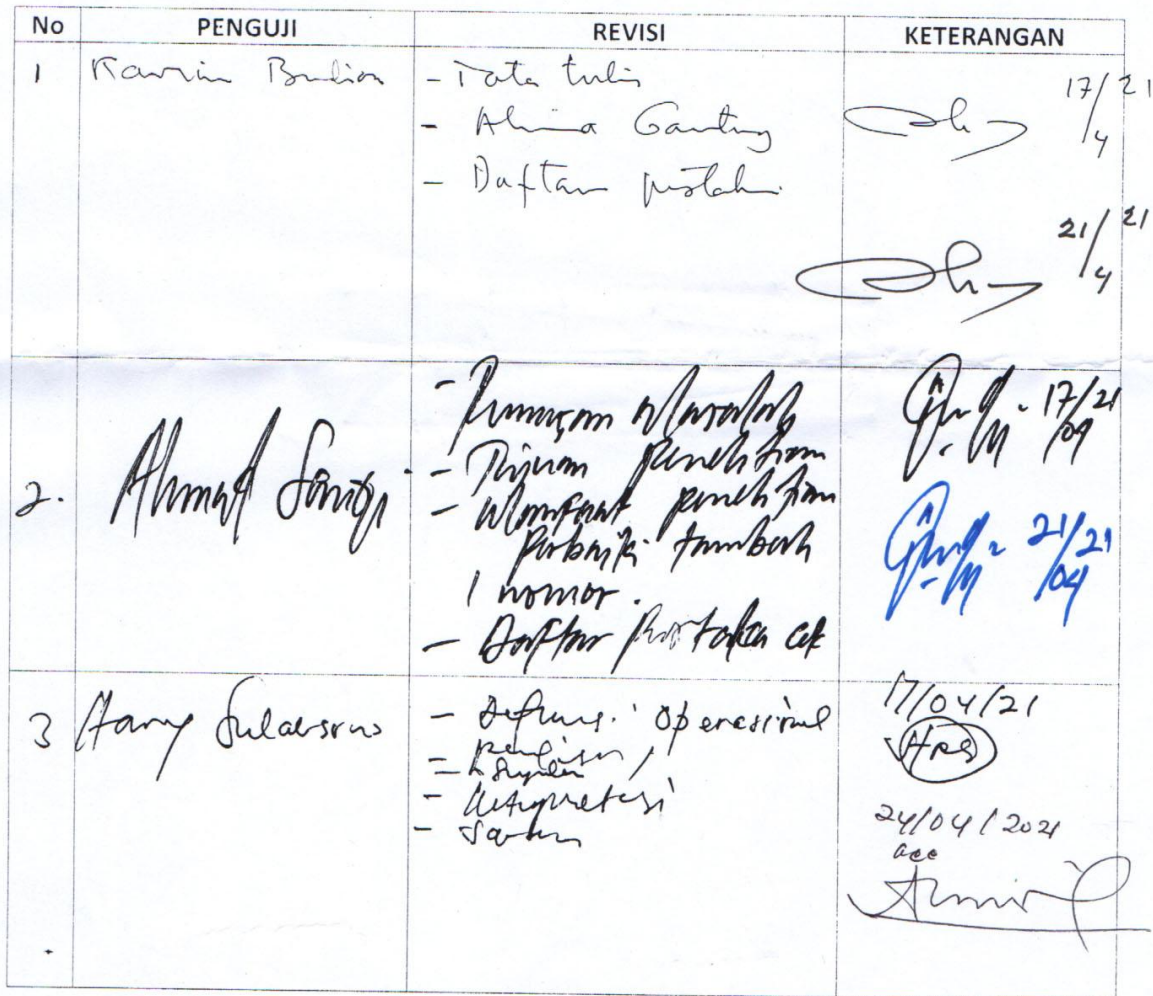 No PENGUJI REVISI KETERANGAN
1
- Tata tulis
-
- Daftar pustaka
17/4 21
21/4 21
2. Ahmad
- Rumusan Masalah
- Tujuan penelitian
- Manfaat penelitian
perbaiki tambah
1 nomor.
- Daftar Pustaka cek
17/04 21
21/04 21
3 Hany
- Definisi Operasional
- penulisan
-
- interpretasi
- Saran
17/04/21
24/04/2021
acc